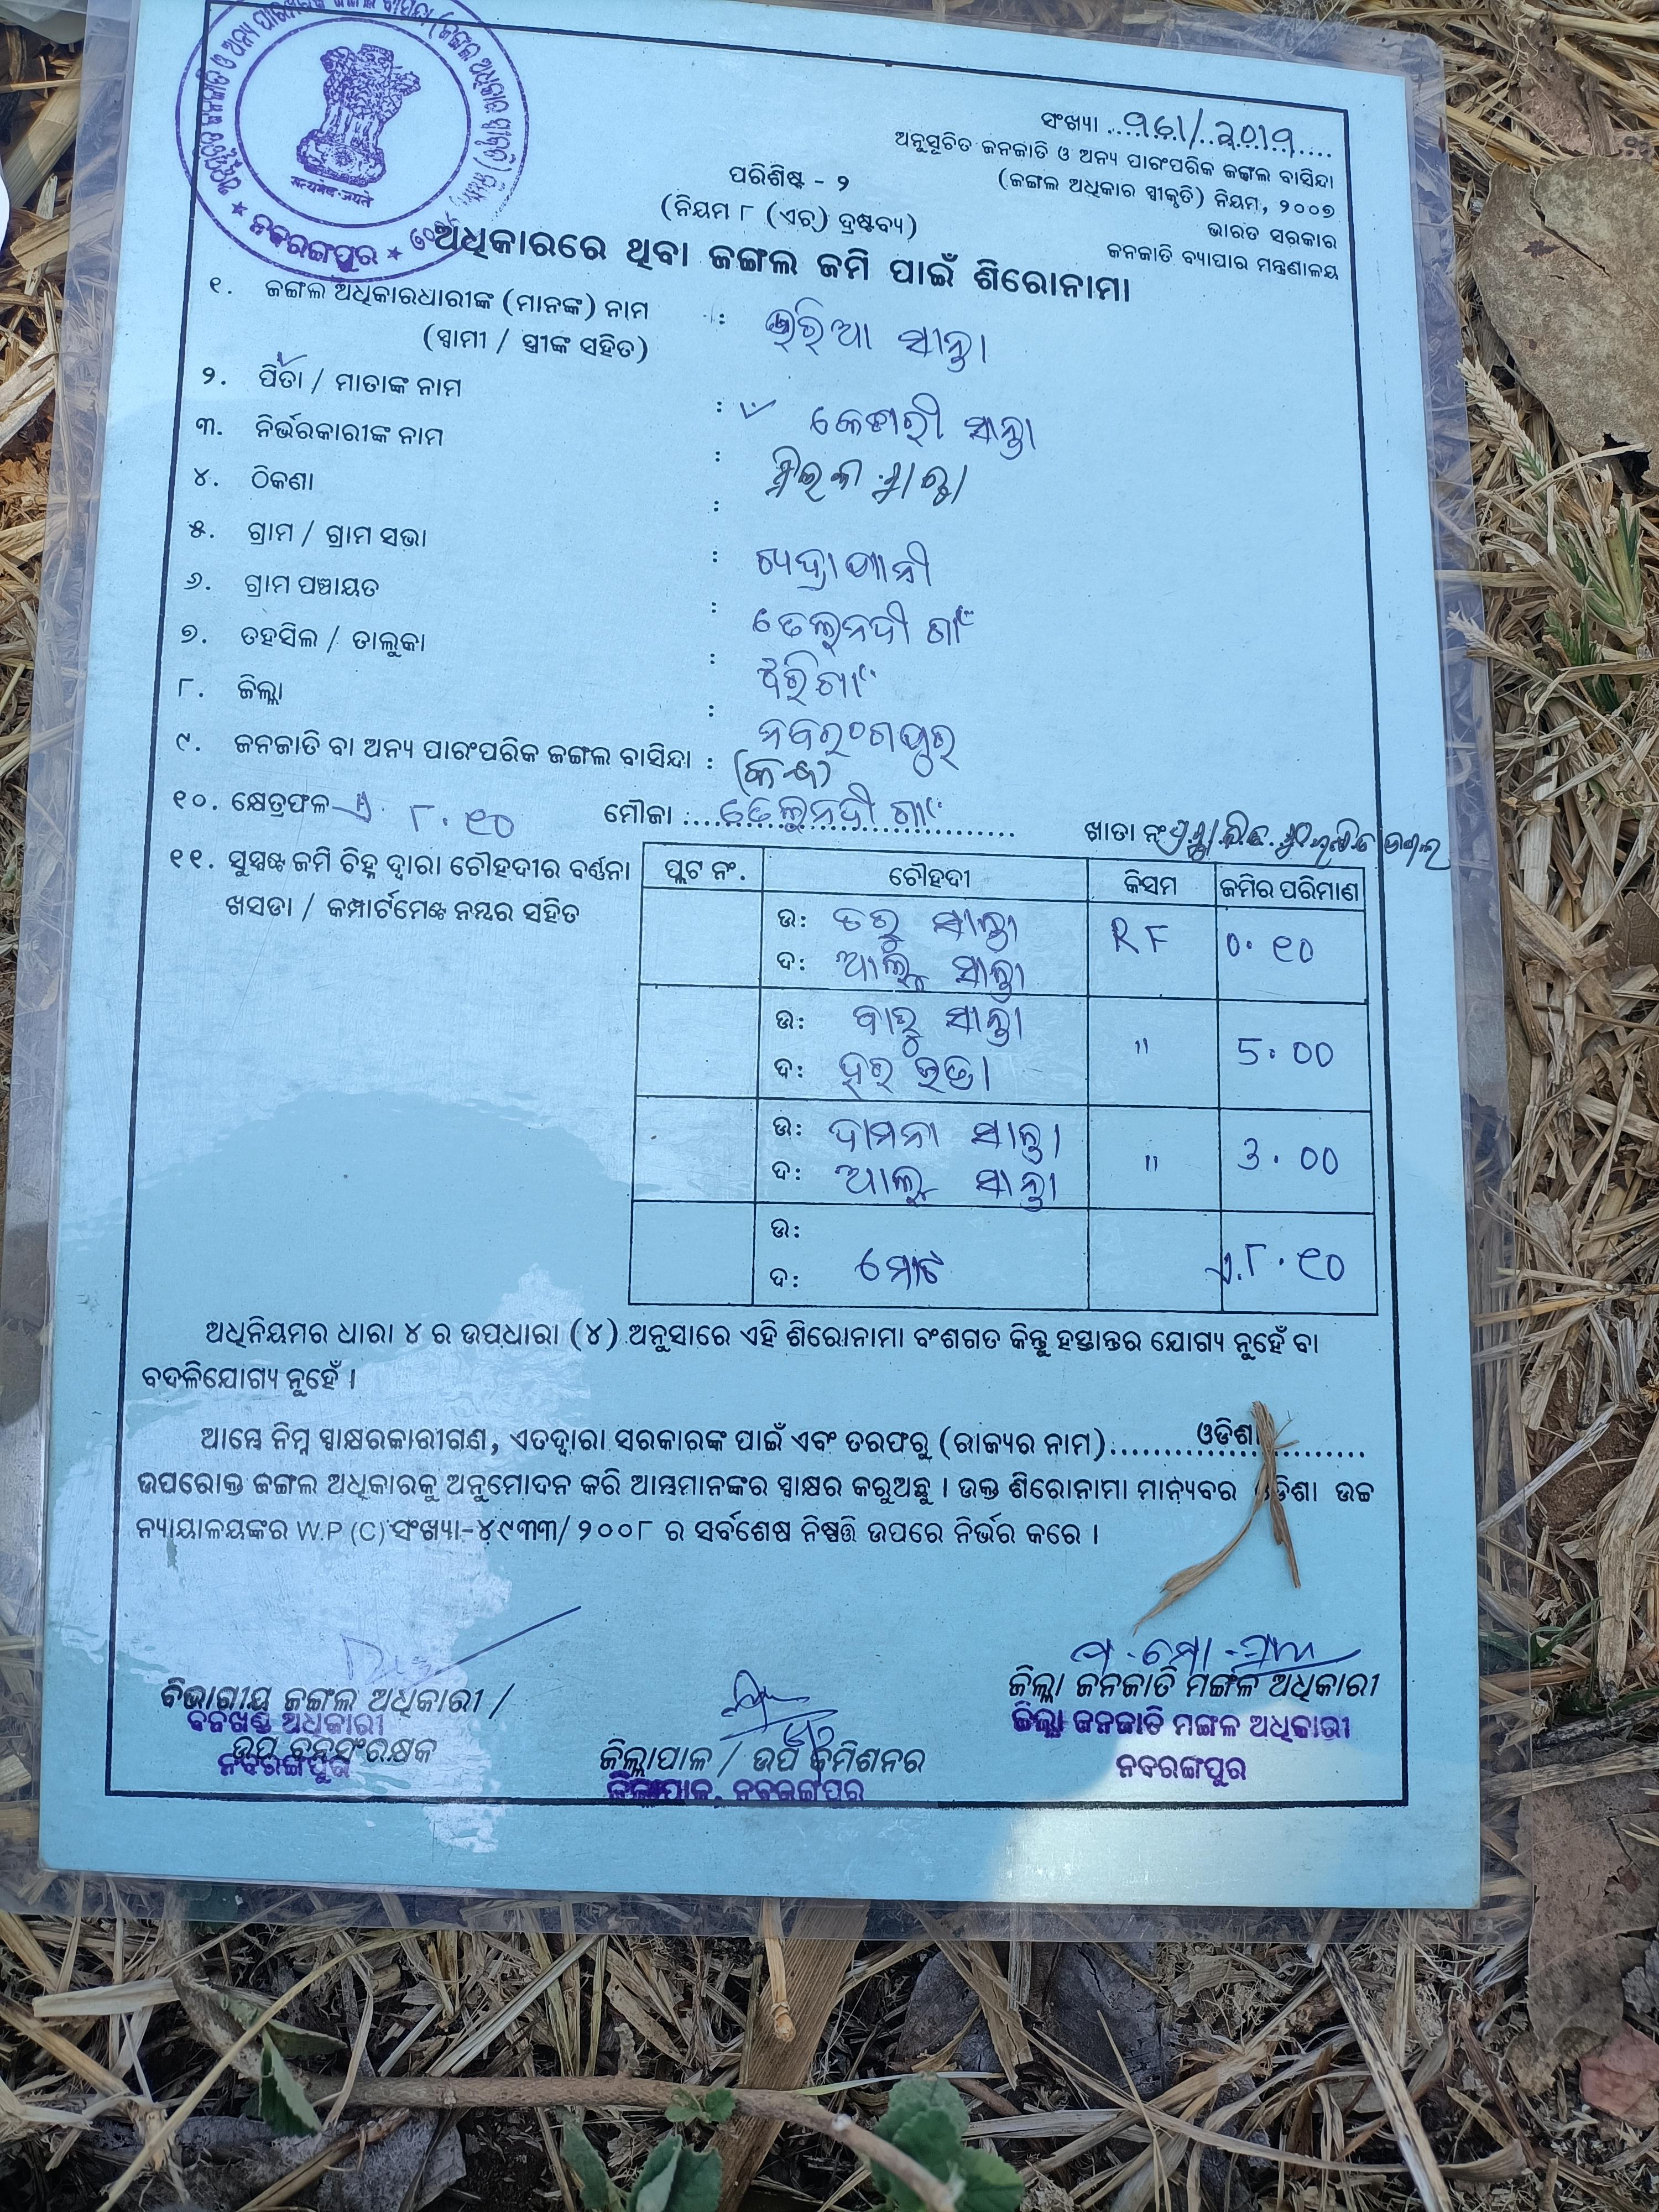 ସଂଖ୍ୟା
ଅନୁସୂଚିତ ଜନଜାତି ଓ ଅନ୍ୟ ପାରଂପରିକ ଜଙ୍ଗଲ ବାସିନ୍ଦା
(ଜଙ୍ଗଲ ଅଧିକାର ସ୍ୱୀକୃତି) ନିୟମ, ୨୦୦୭
ଭାରତ ସରକାର
ଜନଜାତି ବ୍ୟାପାର ମନ୍ତ୍ରଣାଳୟ
ପରିଶିଷ୍ଟ - ୨
(ନିୟମ ୮ (ଏଚ୍) ଦ୍ରଷ୍ଟବ୍ୟ)
ନବରଙ୍ଗପୁର
ଅଧିକାରରେ ଥିବା ଜଙ୍ଗଲ ଜମି ପାଇଁ ଶିରୋନାମା
୧. ଜଙ୍ଗଲ ଅଧିକାରଧାରୀଙ୍କ (ମାନଙ୍କ) ନାମ :
(ସ୍ୱାମୀ / ସ୍ତ୍ରୀଙ୍କ ସହିତ)
୨. ପିତା / ମାତାଙ୍କ ନାମ : କେଶରୀ ସାନ୍ତା
୩. ନିର୍ଭରକାରୀଙ୍କ ନାମ :
୪. ଠିକଣା :
୫. ଗ୍ରାମ / ଗ୍ରାମ ସଭା :
୬. ଗ୍ରାମ ପଞ୍ଚାୟତ : ତେଲନଦୀ ଗାଁ
୭. ତହସିଲ / ତାଲୁକା :
୮. ଜିଲ୍ଲା : ନବରଂଗପୁର
୯. ଜନଜାତି ବା ଅନ୍ୟ ପାରଂପରିକ ଜଙ୍ଗଲ ବାସିନ୍ଦା :
୧୦. କ୍ଷେତ୍ରଫଳ ଏ ୮.୧୦ ମୌଜା ତେଲନଦୀ ଗାଁ ଖାତା ନଂ
୧୧. ସୁସ୍ପଷ୍ଟ ଜମି ଚିହ୍ନ ଦ୍ୱାରା ଚୌହଦୀର ବର୍ଣ୍ଣନା
ଖସଡା / କମ୍ପାର୍ଟମେଣ୍ଟ ନମ୍ବର ସହିତ
ପ୍ଲଟ ନଂ. ଚୌହଦୀ କିସମ ଜମିର ପରିମାଣ
ଉ: ସାନ୍ତା RF ୦.୧୦
ଦ: ଆଲୁ ସାନ୍ତା
ଉ: ସାନ୍ତା " 5.00
ଦ:
ଉ: ଦାମନା ସାନ୍ତା " 3.00
ଦ: ଆଲୁ ସାନ୍ତା
ଉ:
ଦ: ମୋଟ ଏ.୮.୧୦
ଅଧିନିୟମର ଧାରା ୪ ର ଉପଧାରା (୪) ଅନୁସାରେ ଏହି ଶିରୋନାମା ବଂଶଗତ କିନ୍ତୁ ହସ୍ତାନ୍ତର ଯୋଗ୍ୟ ନୁହେଁ ବା
ବଦଳିଯୋଗ୍ୟ ନୁହେଁ ।
ଆମ୍ଭେ ନିମ୍ନ ସ୍ୱାକ୍ଷରକାରୀଗଣ, ଏତଦ୍ୱାରା ସରକାରଙ୍କ ପାଇଁ ଏବଂ ତରଫରୁ (ରାଜ୍ୟର ନାମ) ଓଡିଶା
ଉପରୋକ୍ତ ଜଙ୍ଗଲ ଅଧିକାରକୁ ଅନୁମୋଦନ କରି ଆମ୍ଭମାନଙ୍କର ସ୍ୱାକ୍ଷର କରୁଅଛୁ । ଉକ୍ତ ଶିରୋନାମା ମାନ୍ୟବର ଓଡିଶା ଉଚ୍ଚ
ନ୍ୟାୟାଳୟଙ୍କର W.P (C) ସଂଖ୍ୟା-୪୯୩୩/୨୦୦୮ ର ସର୍ବଶେଷ ନିଷ୍ପତ୍ତି ଉପରେ ନିର୍ଭର କରେ ।
ବିଭାଗୀୟ ଜଙ୍ଗଲ ଅଧିକାରୀ /
ବନଖଣ୍ଡ ଅଧିକାରୀ
ଉପ ବନସଂରକ୍ଷକ
ନବରଙ୍ଗପୁର
ଜିଲ୍ଲାପାଳ / ଉପ କମିଶନର
ଜିଲ୍ଲାପାଳ, ନବରଙ୍ଗପୁର
ଜିଲ୍ଲା ଜନଜାତି ମଙ୍ଗଳ ଅଧିକାରୀ
ଜିଲ୍ଲା ଜନଜାତି ମଙ୍ଗଳ ଅଧିକାରୀ
ନବରଙ୍ଗପୁର